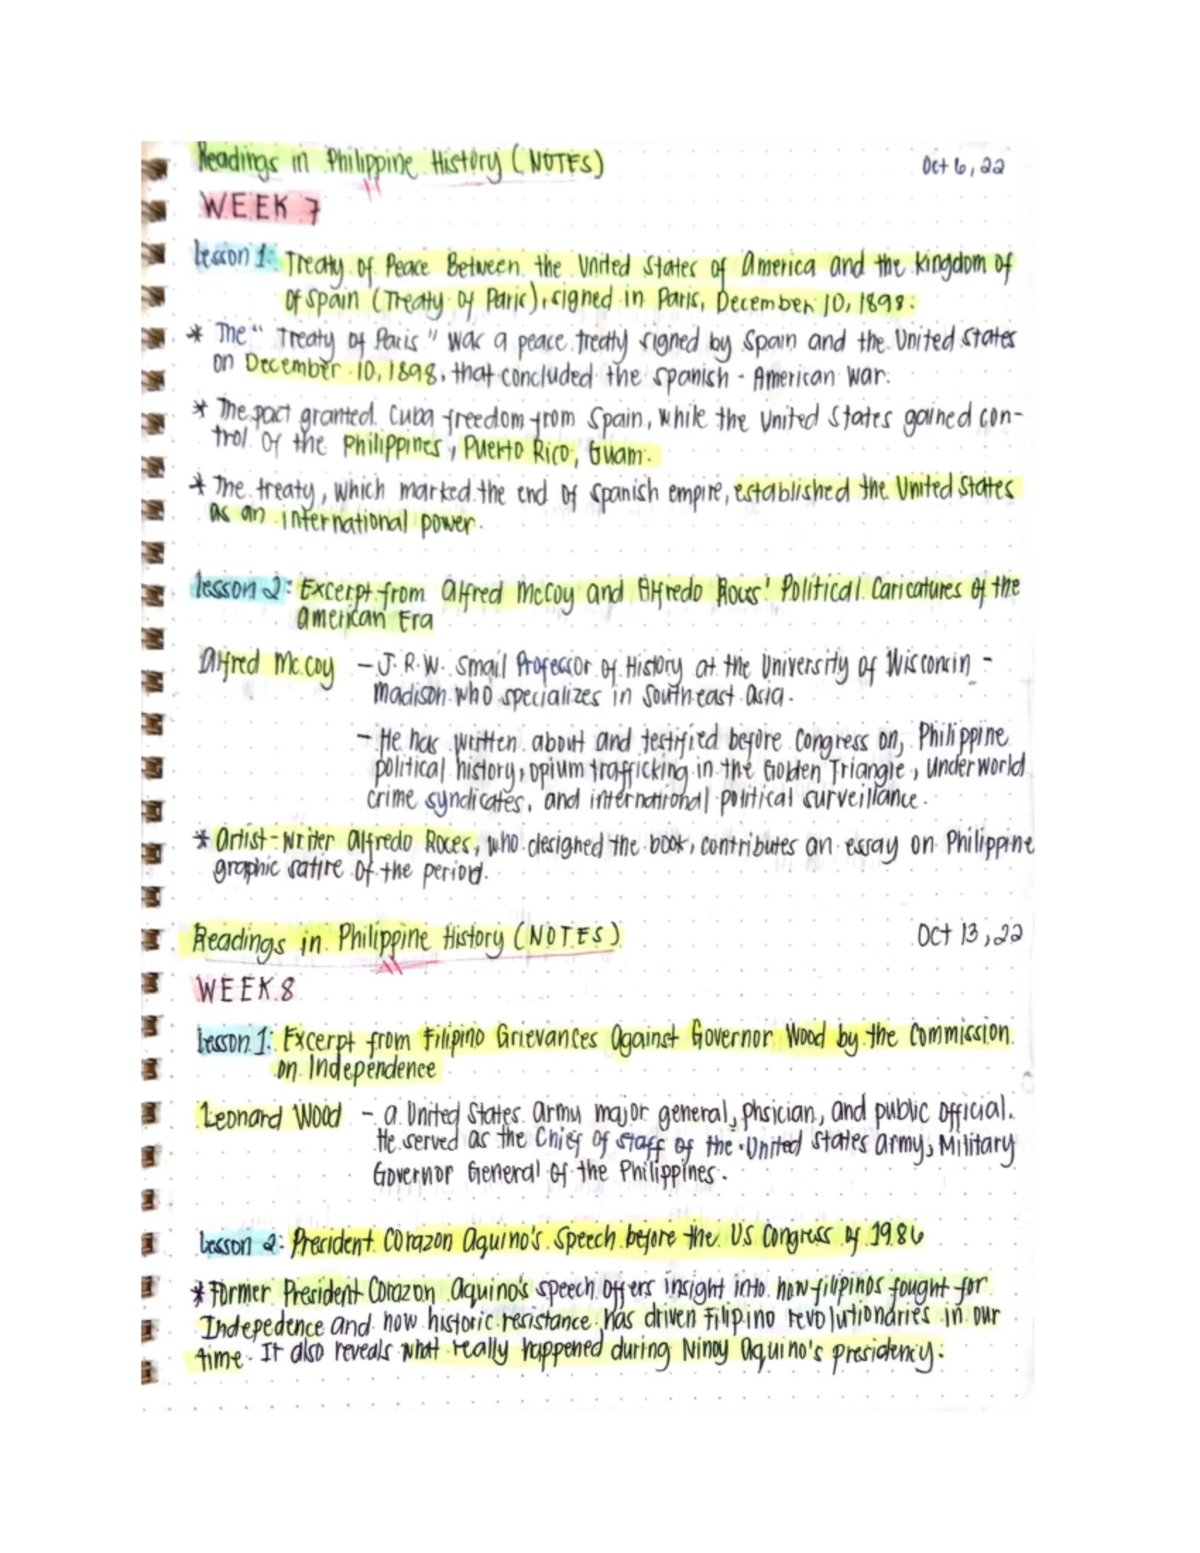 Readings in Philippine History (NOTES)
Oct 6, 22
WEEK 7
Lesson 1: Treaty of Peace Between the United States of America and the Kingdom of
of Spain (Treaty of Paris), signed in Paris, December 10, 1898.
* The "Treaty of Paris" was a peace treaty signed by Spain and the United States
on December 10, 1898, that concluded the Spanish - American War.
* The pact granted Cuba freedom from Spain, while the United States gained con-
trol of the Philippines, Puerto Rico, Guam.
* The treaty, which marked the end of Spanish empire, established the United States
as an international power.
Lesson 2: Excerpt from Alfred McCoy and Alfredo Roces' Political Caricatures of the
American Era
Alfred Mc.coy - J.R.W. Smail Professor of History at the University of Wisconcin -
Madison who specializes in Southeast Asia.
- He has written about and testified before Congress on, Philippine
political history, opium trafficking in the Golden Triangle, underworld
crime syndicates, and international political surveillance.
* Artist-writer Alfredo Roces, who designed the book, contributes an essay on Philippine
graphic satire of the period.
Readings in Philippine History (NOTES)
Oct 13, 22
WEEK 8
Lesson 1: Excerpt from Filipino Grievances Against Governor Wood by the Commission
on Independence
Leonard Wood - a United States Army major general, phsician, and public official.
He served as the Chief of Staff of the United States Army, Military
Governor General of the Philippines.
Lesson 2: President Corazon Aquino's Speech before the US Congress of 1986
* Former President Corazon Aquino's speech offers insight into how filipinos fought for
Indepedence and how historic resistance has driven Filipino revolutionaries in our
time. It also reveals what really happened during Ninoy Aquino's presidency.